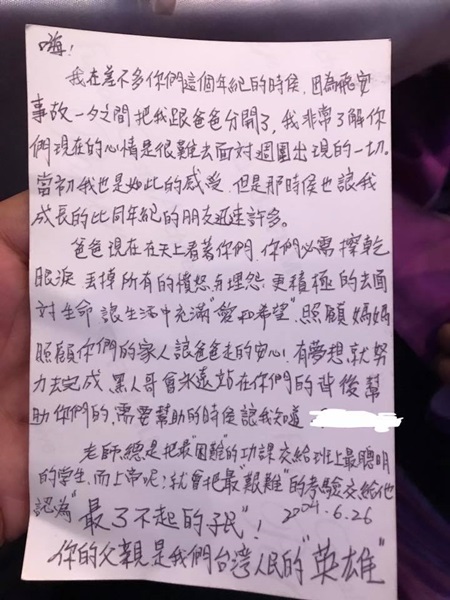 嗨!
我在差不多你們這個年紀的時候,因為飛安
事故一夕之間把我跟爸爸分開了,我非常了解你
們現在的心情是很難去面對週圍出現的一切。
當初我也是如此的感受,但是那時候也讓我
成長的比同年紀的朋友迅速許多。
爸爸現在在天上看著你們,你們必需擦乾
眼淚,丟掉所有的憤怒與埋怨;更積極的去面
對生命,讓生活中充滿"愛和希望",照顧媽媽
照顧你們的家人讓爸爸走的安心!有夢想,就努
力去完成,黑人哥會永遠站在你們的背後幫
助你們的,需要幫助的時候讓我知道
老師,總是把最"困難"的功課交給班上最聰明
的學生,而上帝呢?就會把最"艱難"的考驗交給他
認為"最了不起的子民"!
2004.6.26
你的父親是我們台灣人民的"英雄"